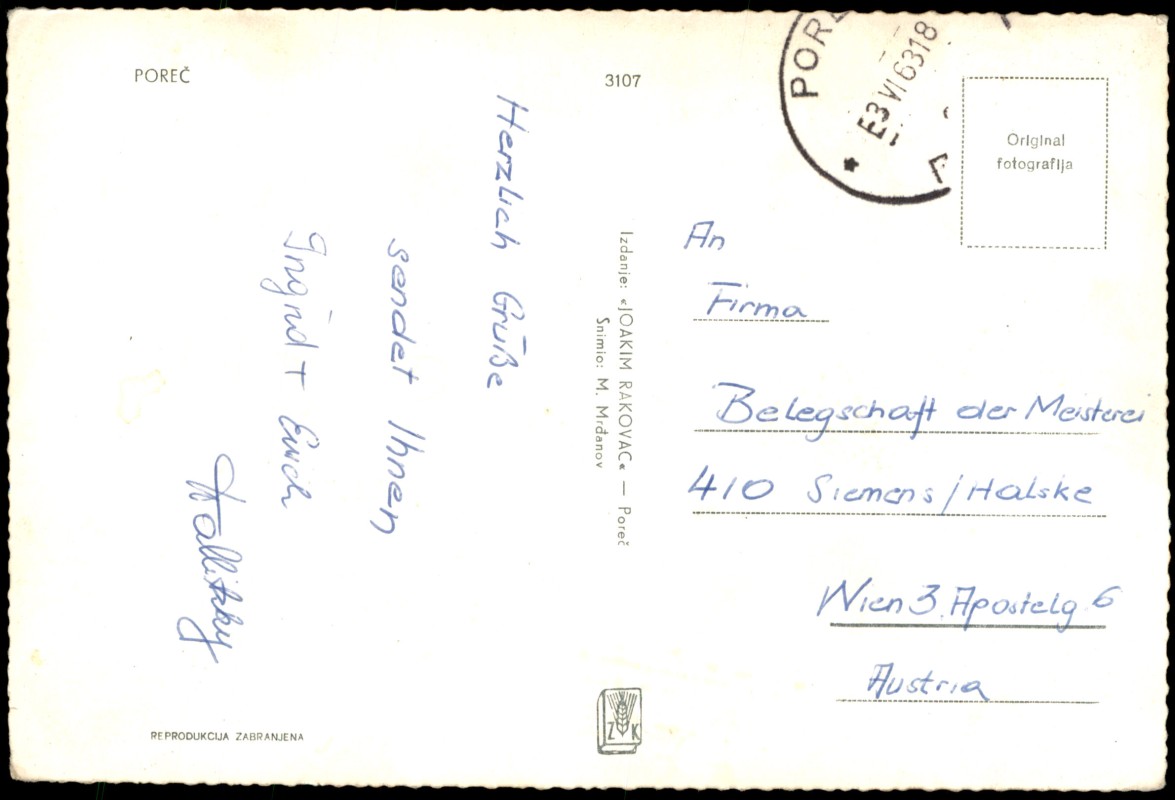 POREČ
3107
POREČ
23 VI 63 18
Original
fotografija
Herzlich Grüße
sendet Ihnen
Ingrid + Erich
Izdanje: «JOAKIM RAKOVAC« — Poreč
Snimio: M. Mrđanov
An
Firma
Belegschaft der Meisterei
410 Siemens/Halske
Wien 3. Apostelg 6
Austria
Z K
REPRODUKCIJA ZABRANJENA